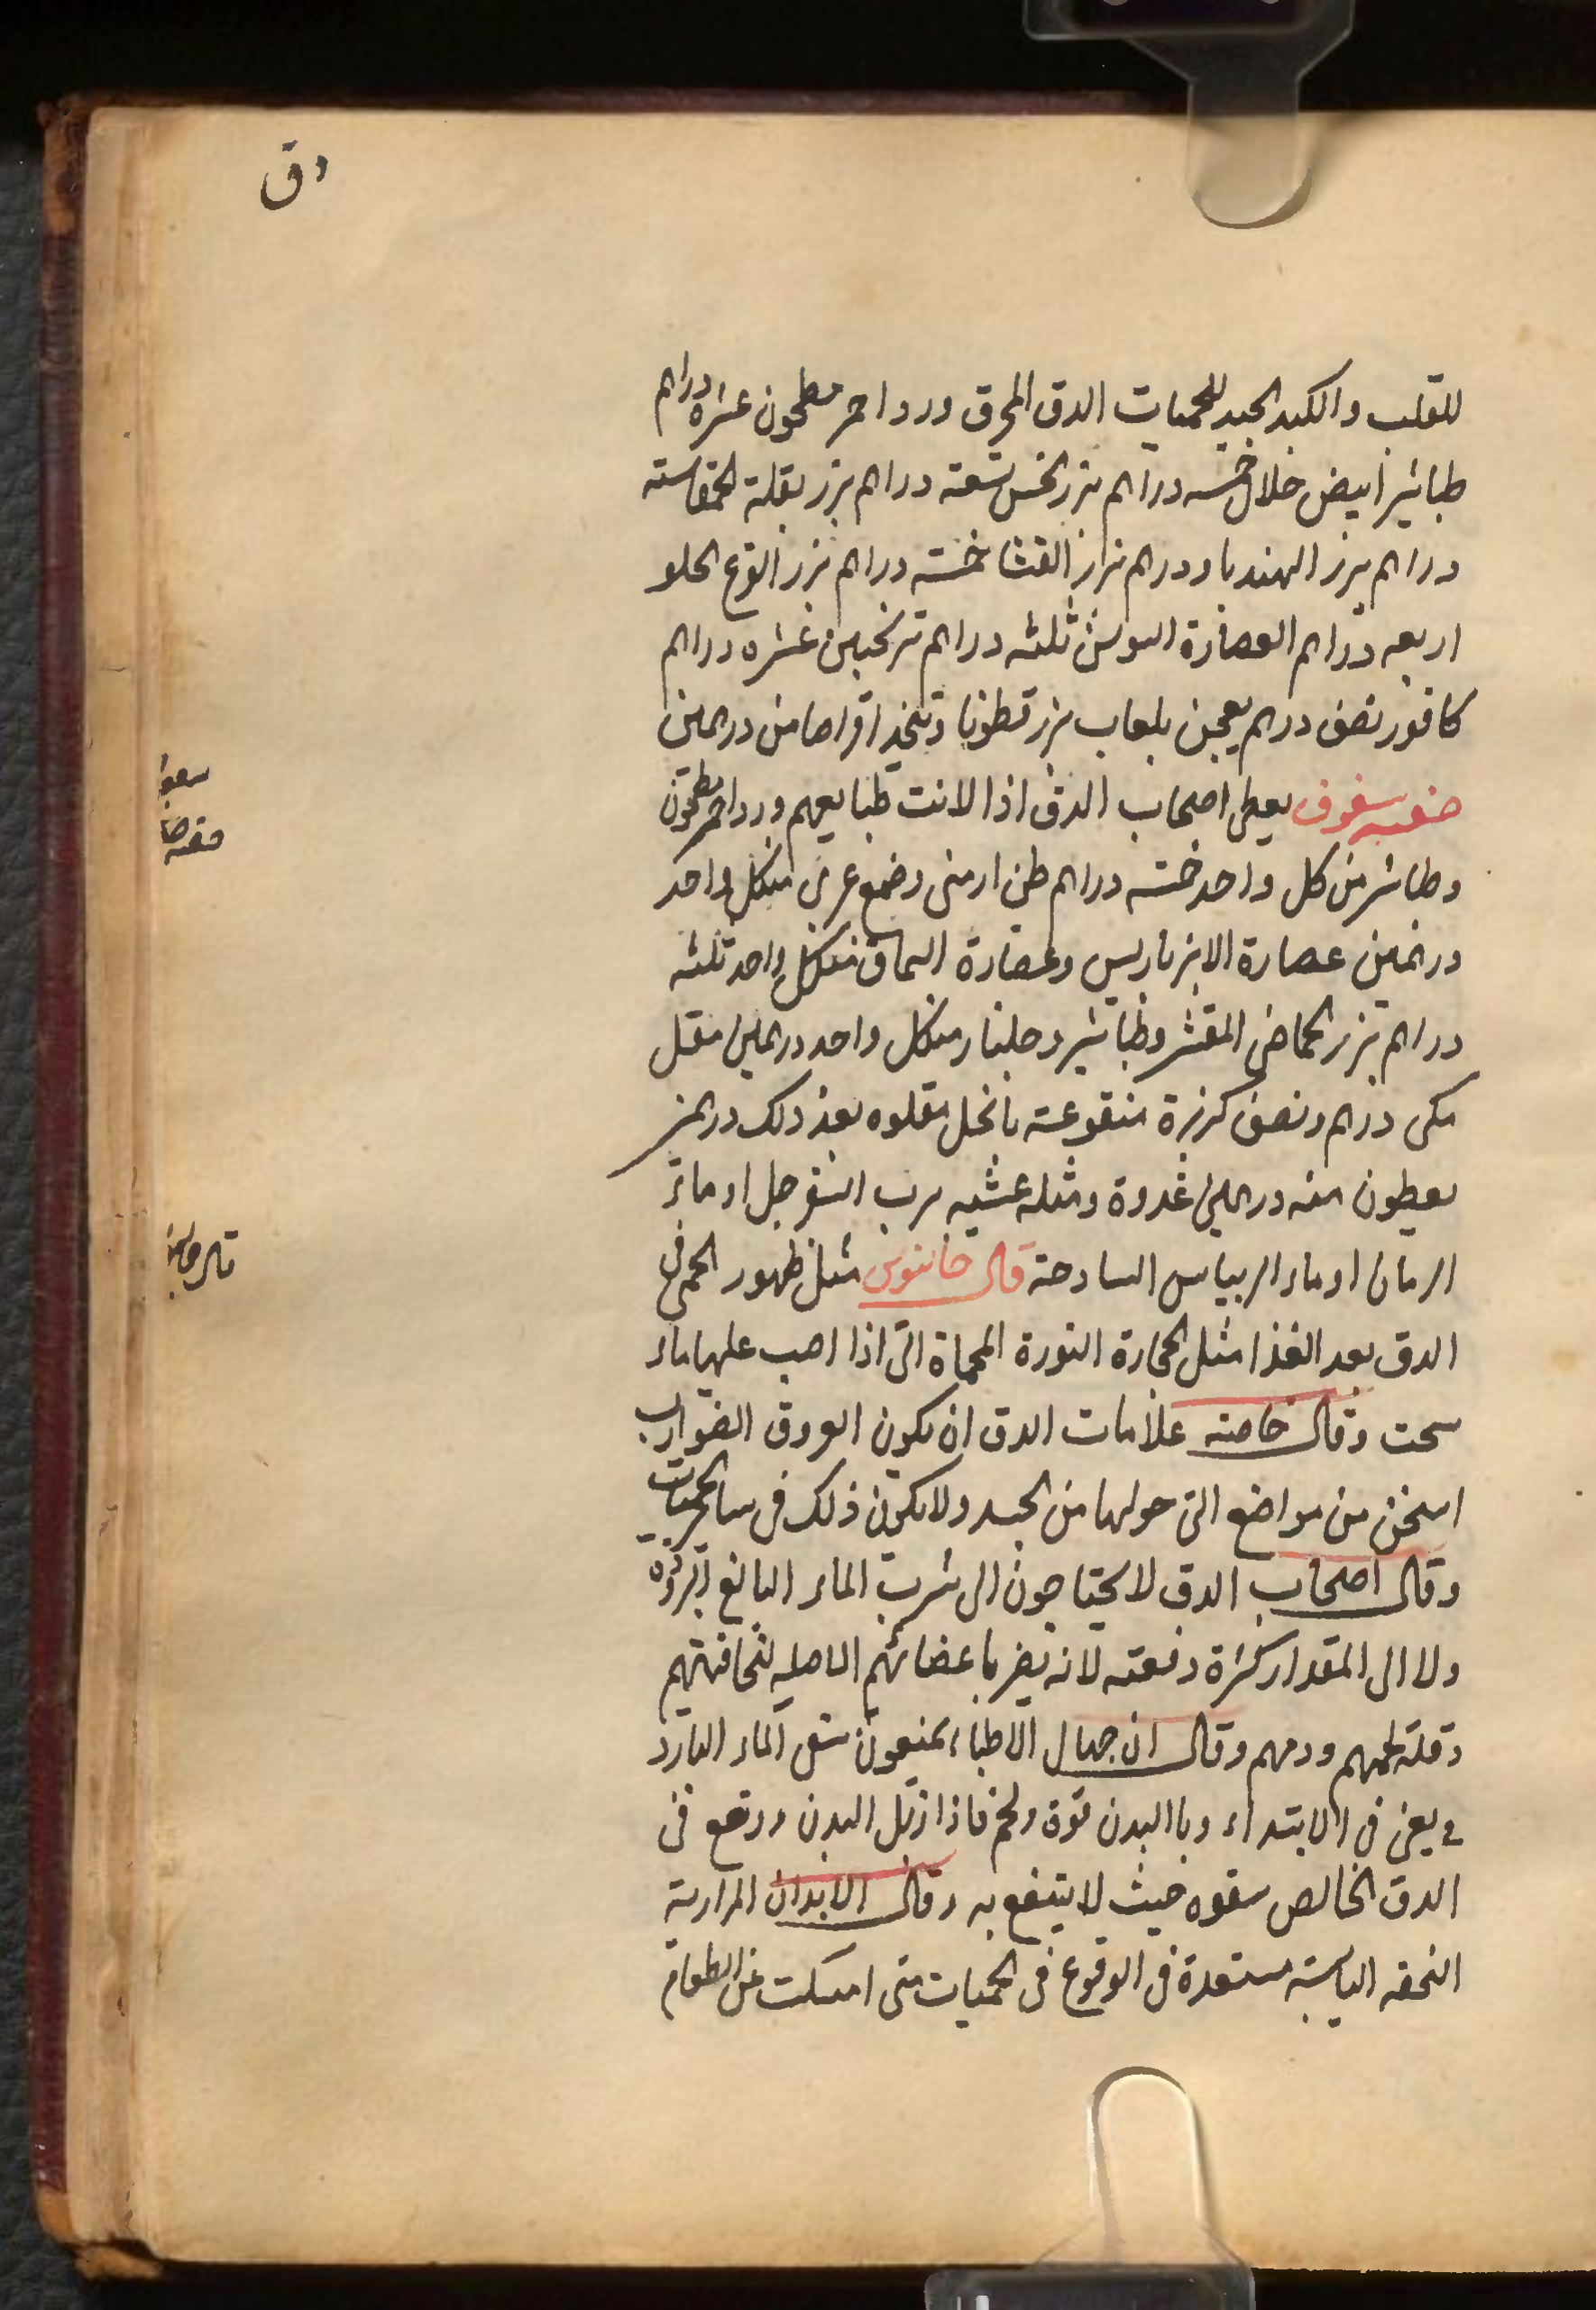 دق
للقلب والكبد الجيد للحميات الدق المحرق ورد احمر مطحون عشره دراهم
طباشير ابيض خلال خمسه دراهم بزر الخس تسعة دراهم بزر بقلة الحمقا سته
دراهم بزر الهندبا ودرهم بزر القثا خمسه دراهم بزر القرع الحلو
اربعه دراهم العصارة السوس ثلثه دراهم ترنجبين عشره دراهم
كافور نصف درهم يعجن بلعاب بزر قطونا وتتخذ اقراصا من درهمين
صفة سفوف يعطى اصحاب الدق اذا لانت طبايعهم ورد احمر مطحون
وطباشير من كل واحد خمسه دراهم طين ارمنى وصمغ عربى من كل واحد
درهمين عصارة الانبرباريس وعصارة السماق من كل واحد ثلثه
دراهم بزر الحماض المقشر وطباشير وجلنار من كل واحد درهمين مقل
مكى درهم ونصف كزبرة منقوعة بالخل مقلوه بعد ذلك درهمين
يعطون منه درهمين غدوة ومثله عشيه برب السفرجل او ماء
الرمان او ماء الريباس السادجة قال جالينوس مثل ظهور الحمى فى
الدق بعد الغذا مثل الحجارة النورة المحماة التى اذا اصب عليها ماء
سخنت وقال خاصته علامات الدق ان يكون العروق الضوارب
اسخن من مواضع التى حولها من الجسد ولا يكون ذلك فى ساير الحميات
وقال اصحاب الدق لا يحتاجون الى شرب الماء البالغ البرودة
ولا الى المقدار كثرة دفعته لانه يضر باعضائهم الاصليه لنحافتهم
وقلة لحمهم ودمهم وقال ان جهال الاطباء يمنعون سقى الماء البارد
يعنى فى الابتداء وبالبدن قوة ولحم فاذا ذبل البدن ووقع فى
الدق الخالص سقوه حيث لا ينتفع به وقال الابدان المرارية
النحفه اليابسة مستعدة فى الوقوع فى الحميات متى امسكت عن الطعام
قال جالينوس